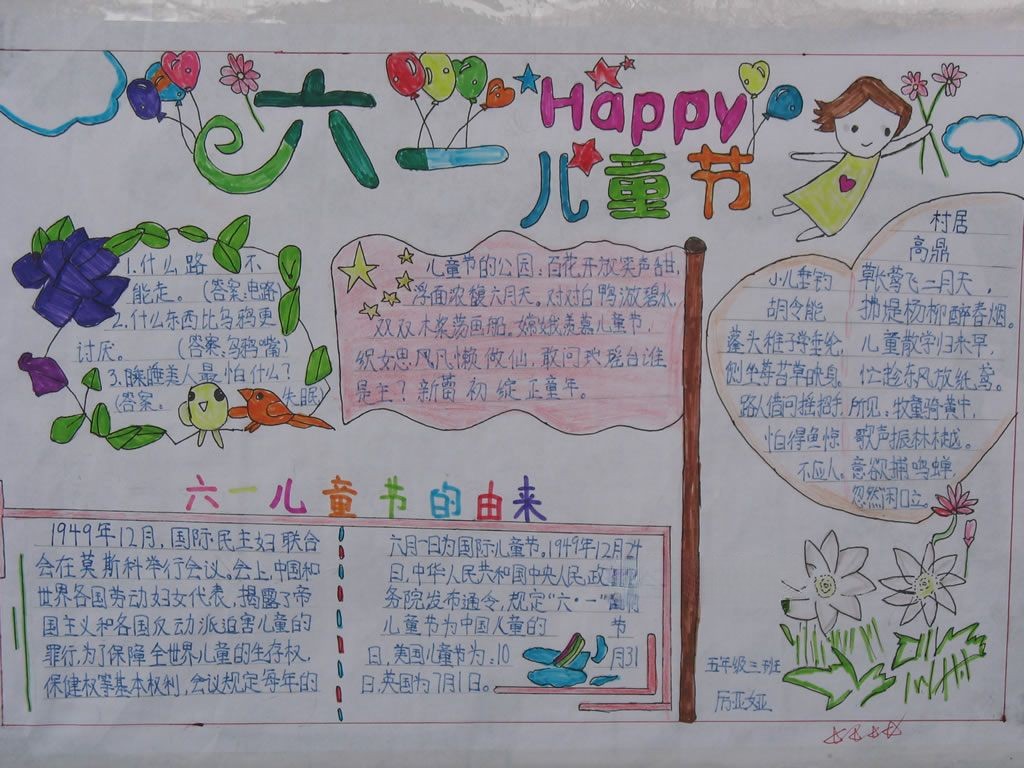 六一
Happy
儿童节
1.什么路 不
能走。(答案:电路)
2.什么东西比乌鸦更
讨厌。(答案:乌鸦嘴)
3.睡美人最怕什么?
(答案. 失眠)
儿童节的公园:百花开放笑声甜,
浮面浓馥六月天。对对白鸭游碧水,
双双木桨荡画船。嫦娥羡慕儿童节,
织女思凡懒做仙.敢问瑶台谁
是主?新蕾初绽正童年。
小儿垂钓
胡令能
蓬头稚子学垂纶,
侧坐莓苔草映身。
路人借问摇招手,
怕得鱼惊
不应人。
村居
高鼎
草长莺飞二月天,
拂堤杨柳醉春烟。
儿童散学归来早,
忙趁东风放纸鸢。
所见:牧童骑黄牛,
歌声振林樾。
意欲捕鸣蝉,
忽然闭口立。
六一儿童节的由来
1949年12月,国际民主妇联合
会在莫斯科举行会议。会上,中国和
世界各国劳动妇女代表,揭露了帝
国主义和各国反动派迫害儿童的
罪行,为了保障全世界儿童的生存权,
保健权等基本权利,会议规定每年的
六月一日为国际儿童节。1949年12月24
日,中华人民共和国中央人民政
务院发布通令,规定"六·一"
儿童节为中国儿童的 节
日,美国儿童节为:10 月31
日,英国为7月1日。
五年级三班
厉亚娅